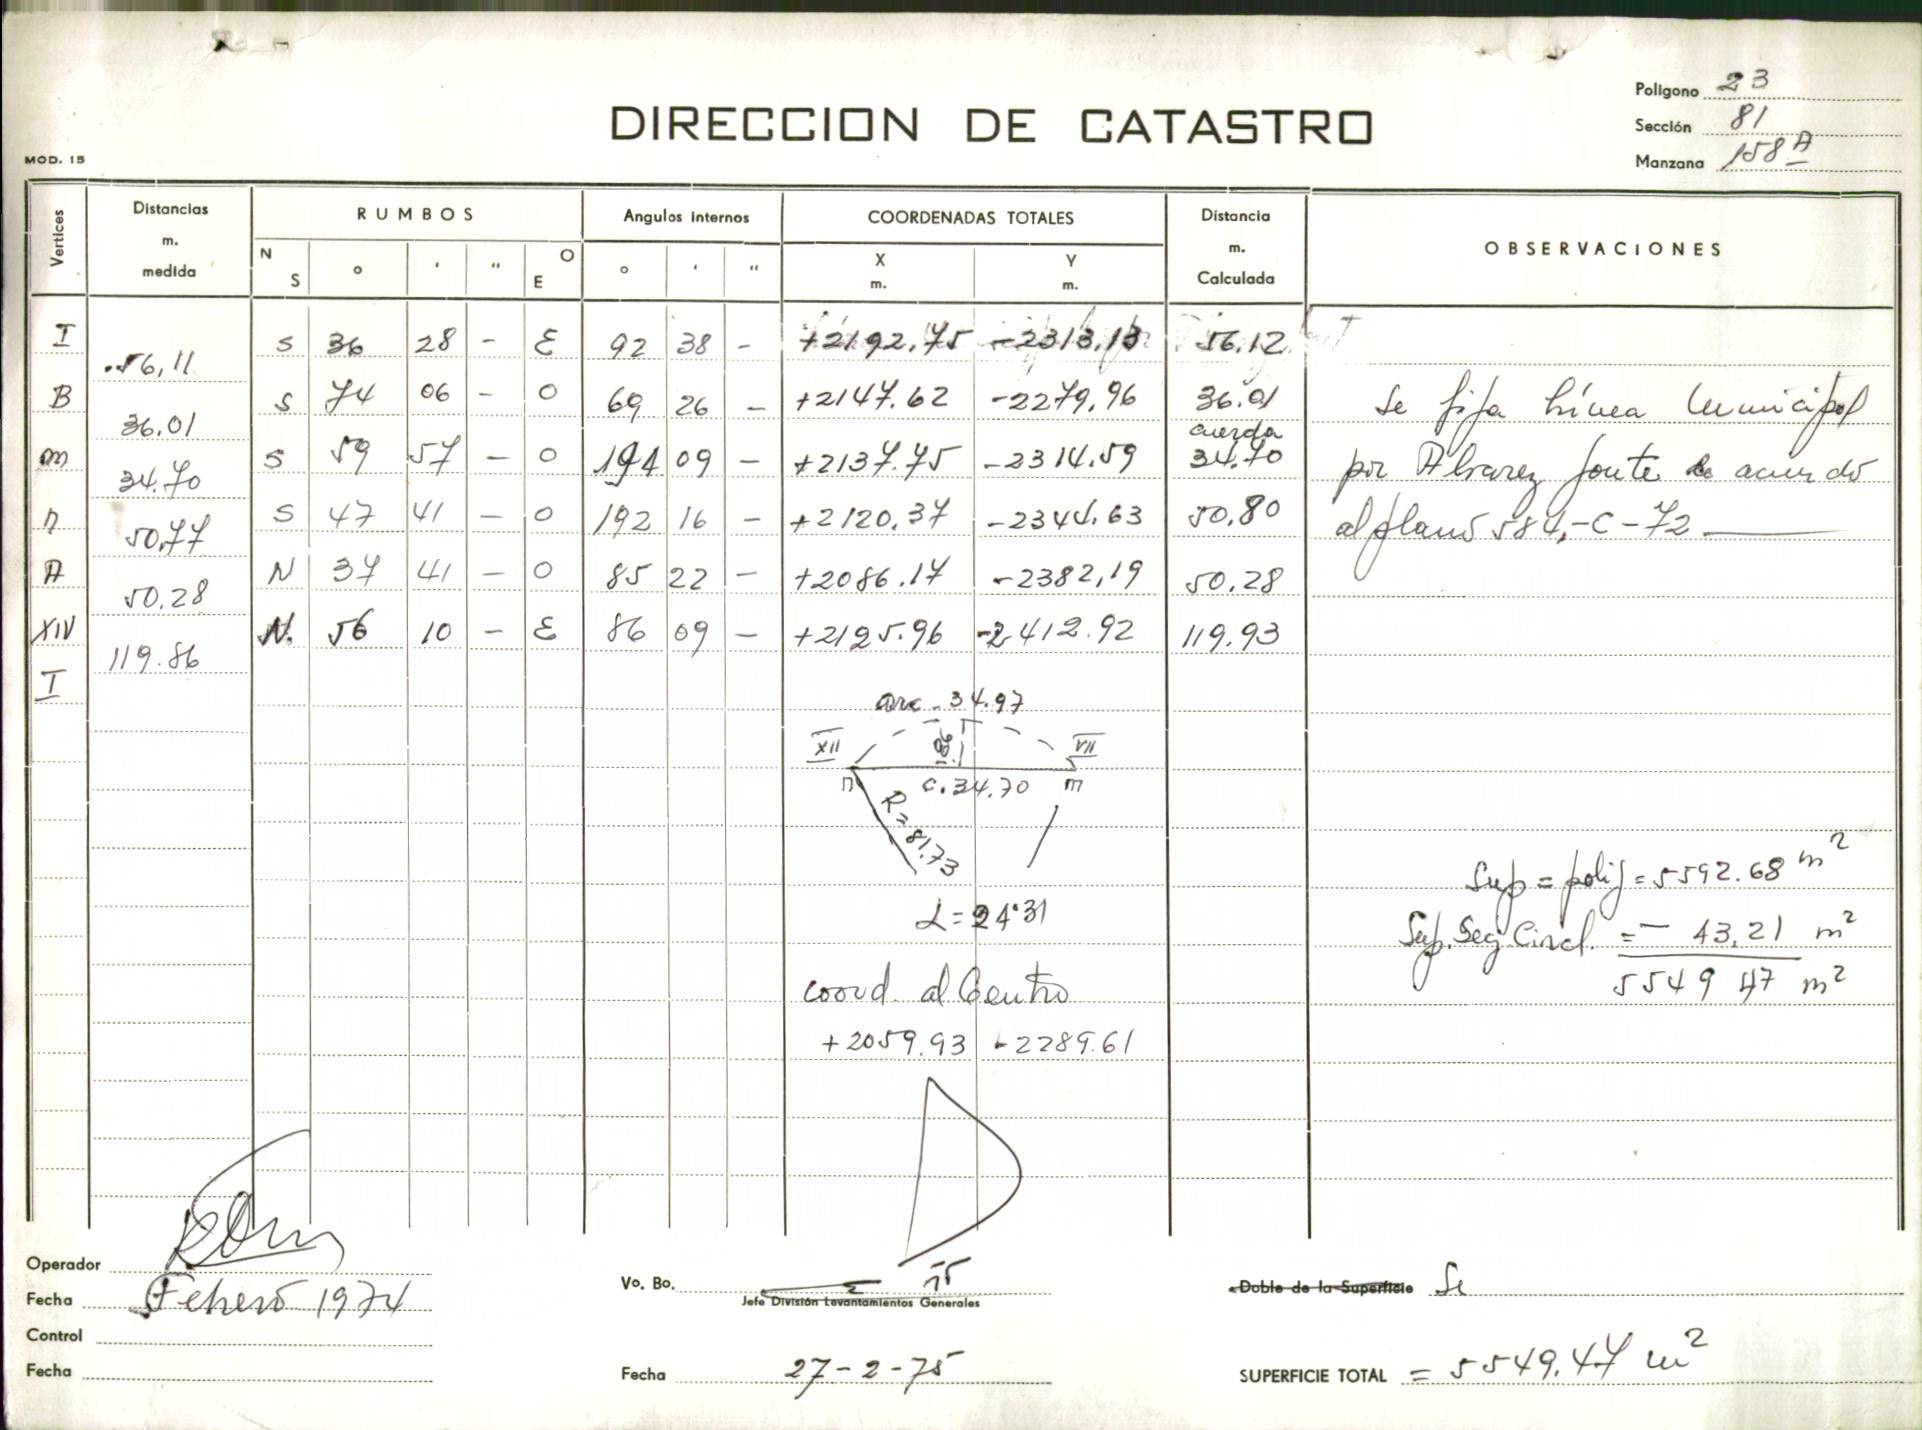 Poligono 23
DIRECCION DE CATASTRO
Sección 81
MOD. 15
Manzana 158 A
Vertices Distancias m. medida RUMBOS Angulos internos COORDENADAS TOTALES Distancia m. Calculada OBSERVACIONES
N S o ' " O E o ' " X m. Y m.
I S 36 28 - E 92 38 - +2192,75 -2313,13 56.12
56,11
B S 74 06 - O 69 26 - +2147.62 -2279,96 36.01
36.01
cuerda
m S 59 57 - O 194 09 - +2137.75 -2314.59 34.70
34.70
n S 47 41 - O 192 16 - +2120,37 -2344.63 50.80
50,77
A N 37 41 - O 85 22 - +2086.17 -2382,19 50.28
50.28
XIV N. 56 10 - E 86 09 - +2125.96 -2412.92 119.93
119.86
I
Se fija Línea Municipal
por Alvarez Jonte de acuerdo
al plano 584,-C-72
arc - 34.97
XII 1.86 VII
n c. 34.70 m
R = 81.73
α = 24°31
coord. al Centro
+2059.93 -2289.61
Sup = polig = 5592.68 m²
Sup. Seg Circl. = - 43,21 m²
5549 47 m²
Operador
Fecha Febrero 1974
Control
Fecha
Vo. Bo.
Jefe División Levantamientos Generales
Fecha 27-2-75
Doble de la Superficie Se
SUPERFICIE TOTAL = 5549.47 m²